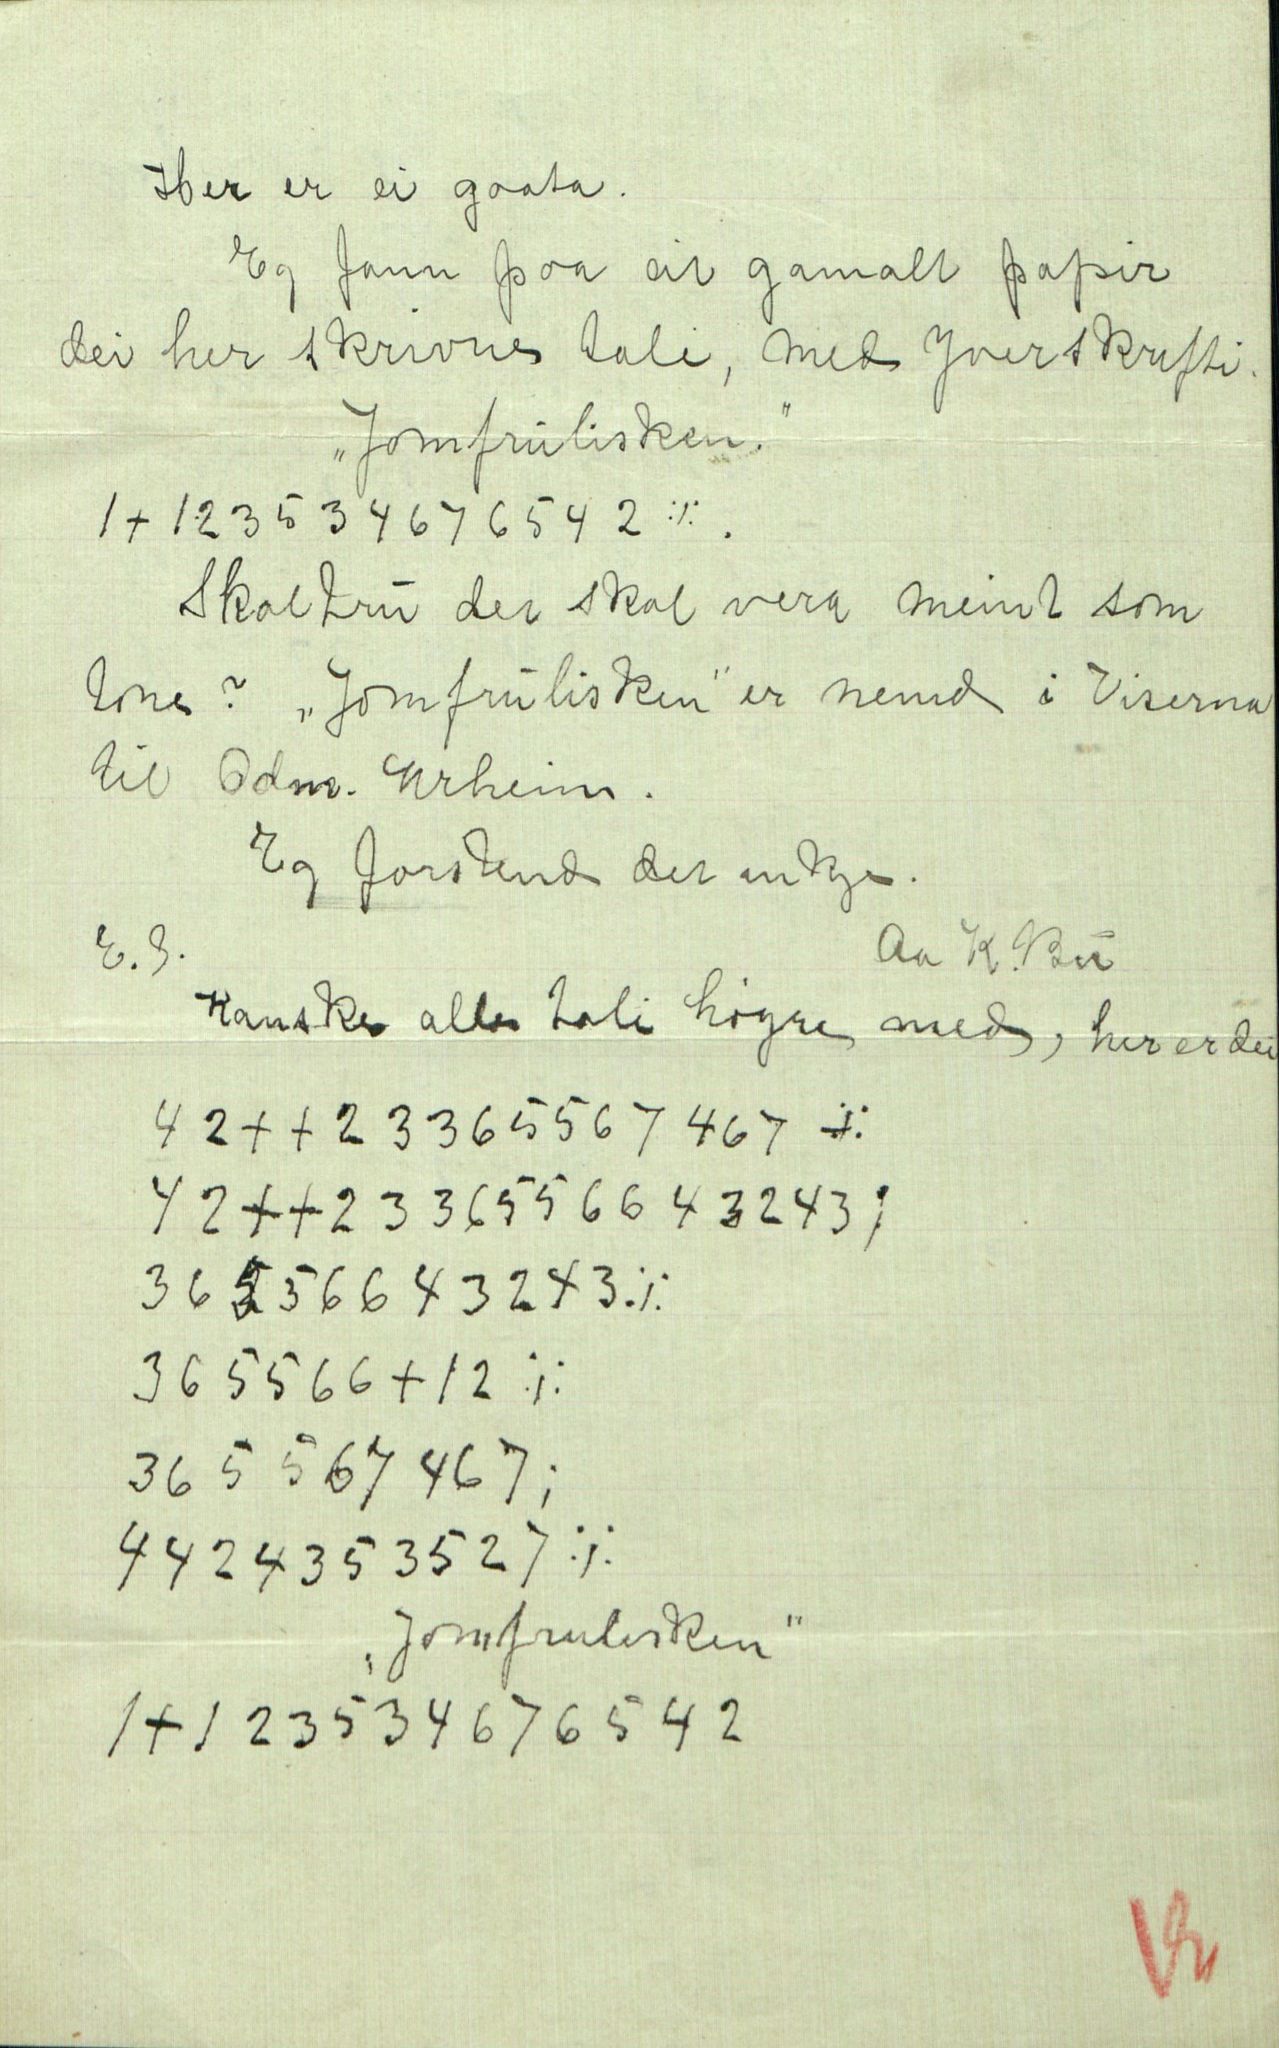 Her er ei gaata.
Eg fann paa eit gamalt papir
dei her skrivne tali, med Yverskrifti.
„Jomfrulisken."
1+12353467 6542 :/: .
Skal tru det skal vera meint som
tone? „Jomfrulisken" er nemd i Viserna
til Odm. Urheim.
Eg forstend det inkje.
Aa K. Bu
E. S.
Kanske alle tali högre med, her er dei
42++23365567 467 :/:
42++23365566 43243 ;
36556643243 :/:
365566+12 :/:
365567467 ;
4424353527 :/:
„Jomfrulisken"
1+123534676542